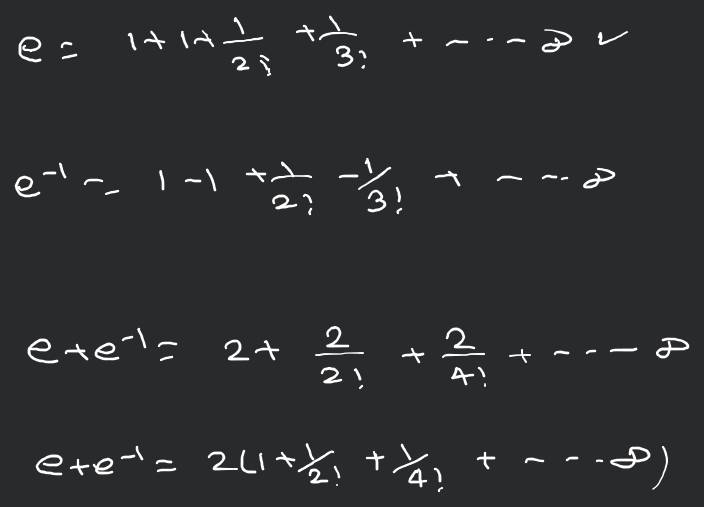 e = 1+1+1/2! +1/3! + ---- ∞ ✓
e⁻¹ = 1-1 +1/2! -1/3! + ---- ∞
e+e⁻¹ = 2+ 2/2! + 2/4! + ---- ∞
e+e⁻¹ = 2(1+1/2! +1/4! + ---- ∞)